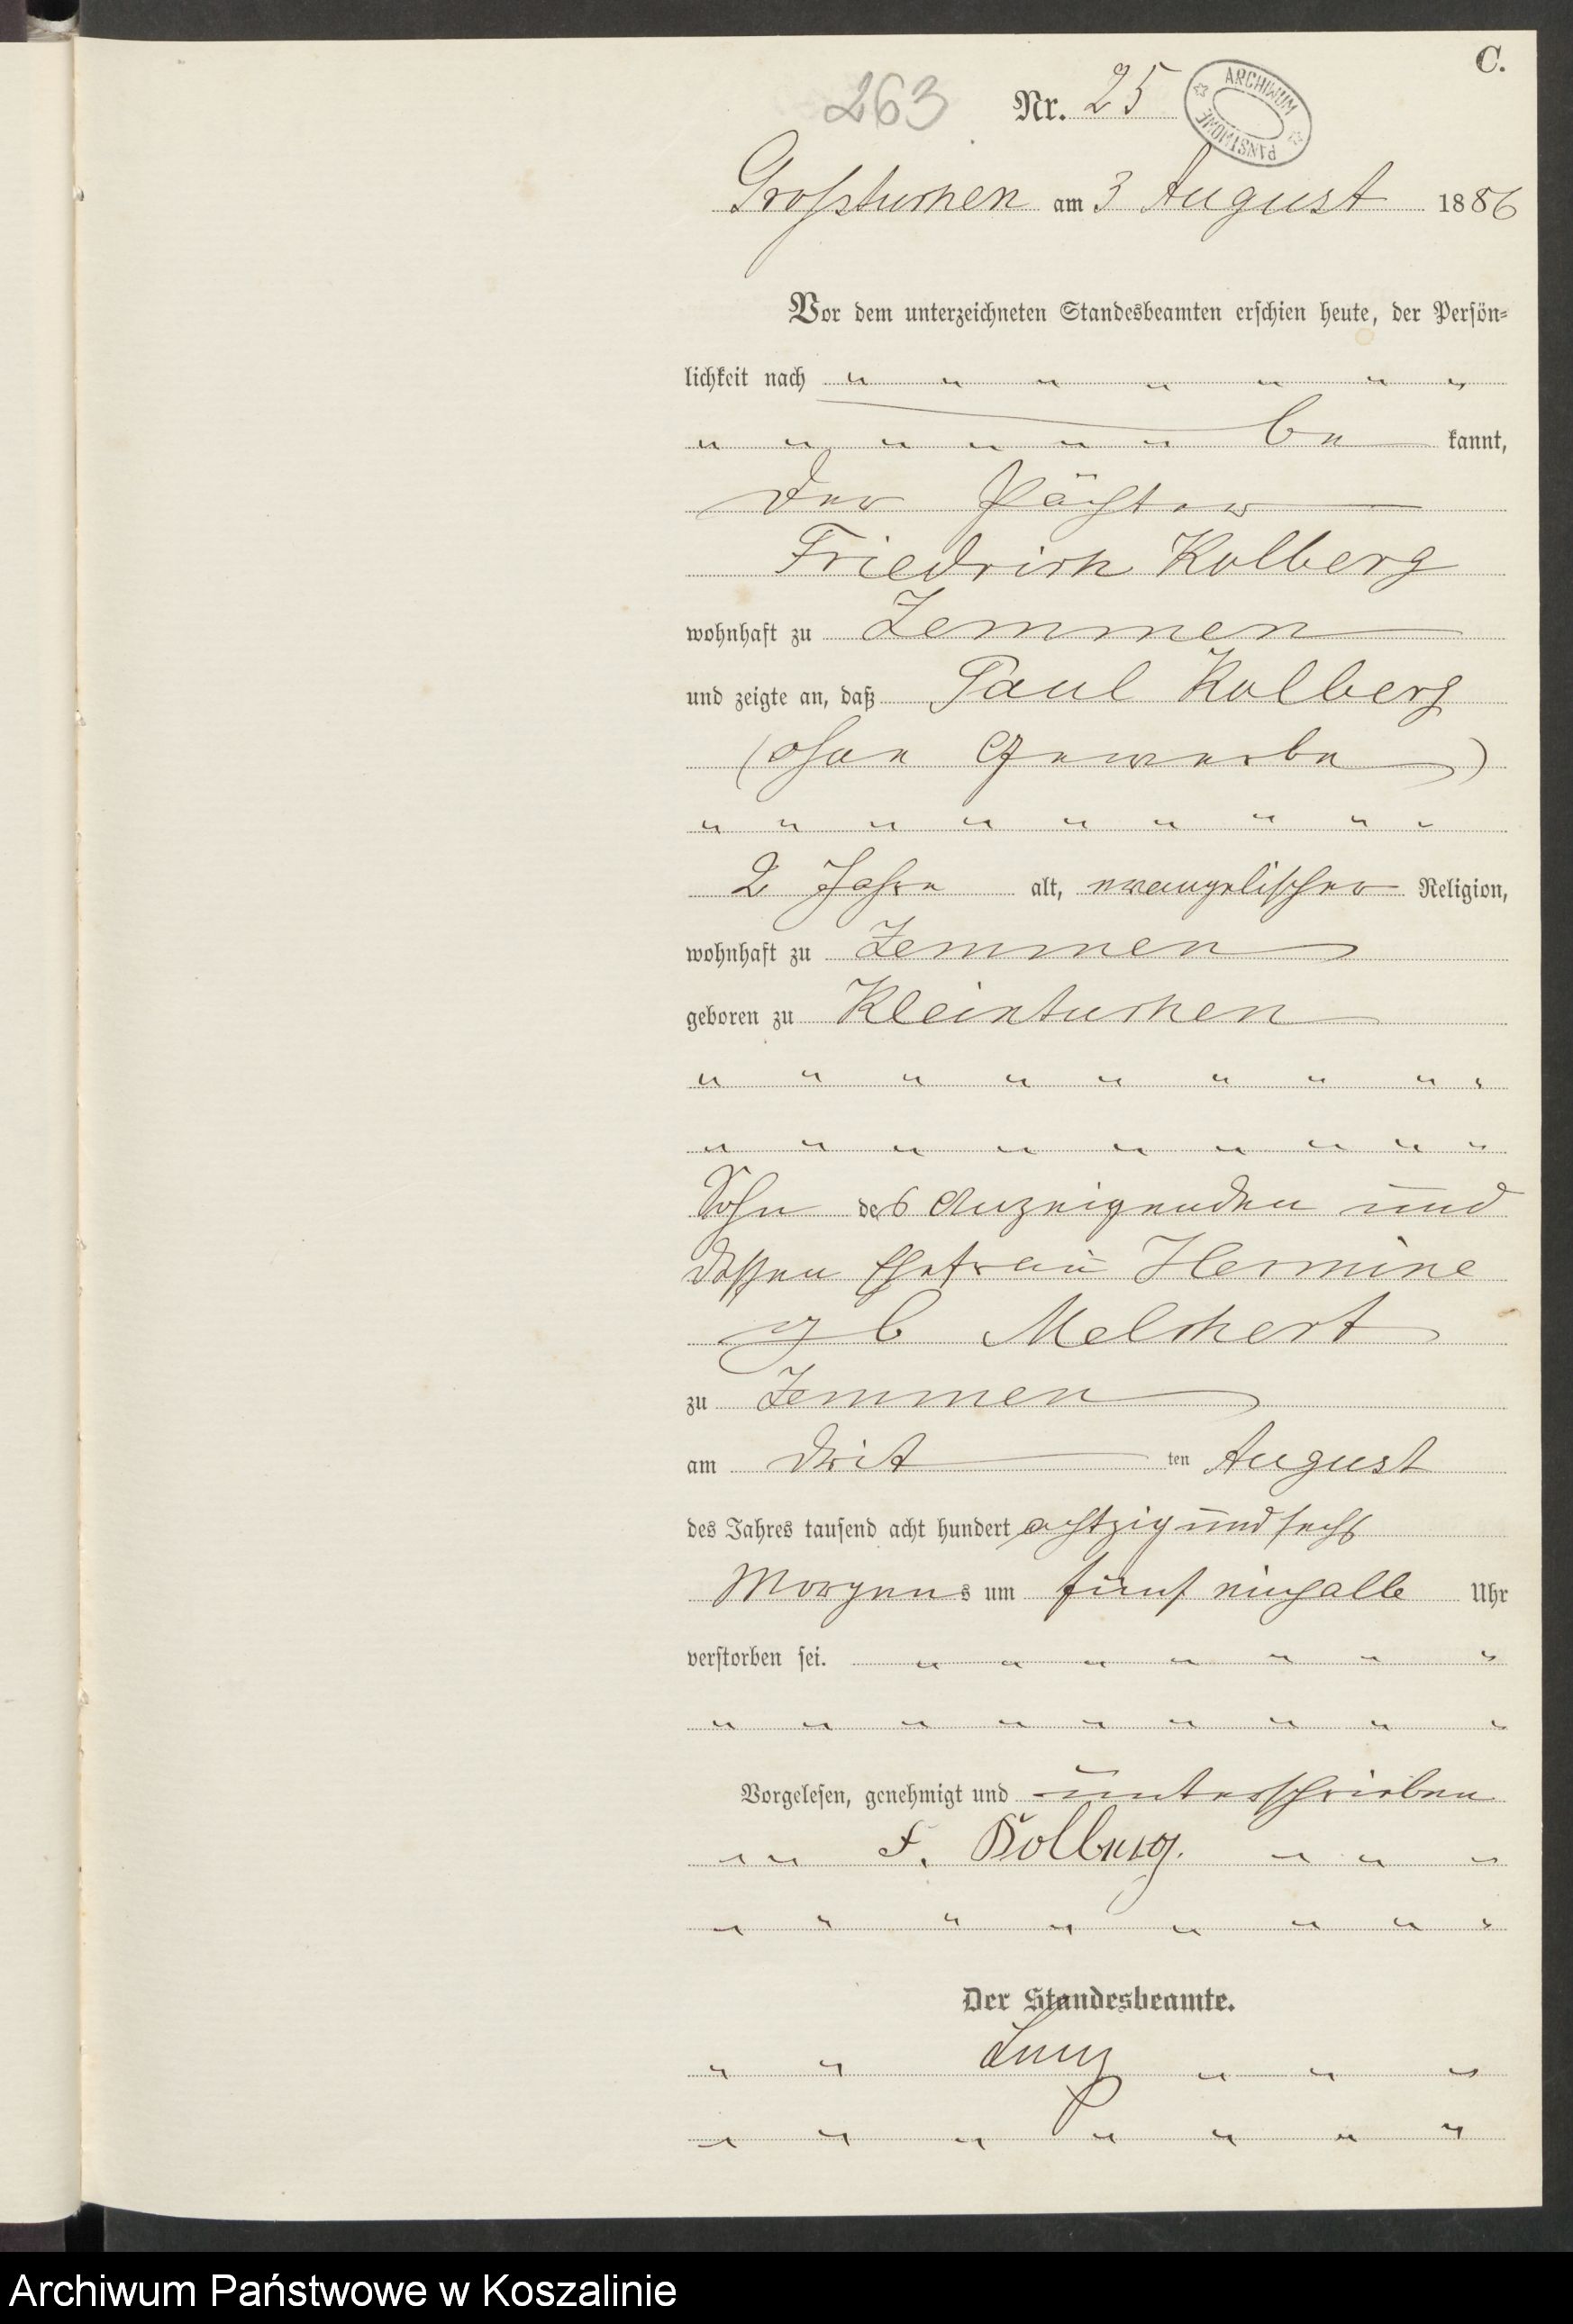 C.
263 Nr. 25
ARCHIWUM PAŃSTWOWE
Großtuchen am 3 August 1886
Vor dem unterzeichneten Standesbeamten erschien heute, der Persön-
lichkeit nach " " " " " " "
" " " " " " be kannt,
der Pächter
Friedrich Kolberg
wohnhaft zu Zemmen
und zeigte an, daß Paul Kolberg
(ohne Gewerbe)
" " " " " " " " "
2 Jahre alt, evangelischer Religion,
wohnhaft zu Zemmen
geboren zu Kleintuchen
" " " " " " " " "
" " " " " " " " "
Sohn des Anzeigenden und
dessen Ehefrau Hermine
geb Melchert
zu Zemmen
am drit ten August
des Jahres tausend acht hundert achtzig und sechs
Morgens um fünf einhalb Uhr
verstorben sei. " " " " " " "
" " " " " " " " "
Vorgelesen, genehmigt und unterschrieben
" " F. Kolberg. " " "
" " " " " " " "
Der Standesbeamte.
" " " " "
" " " " " " "
Archiwum Państwowe w Koszalinie